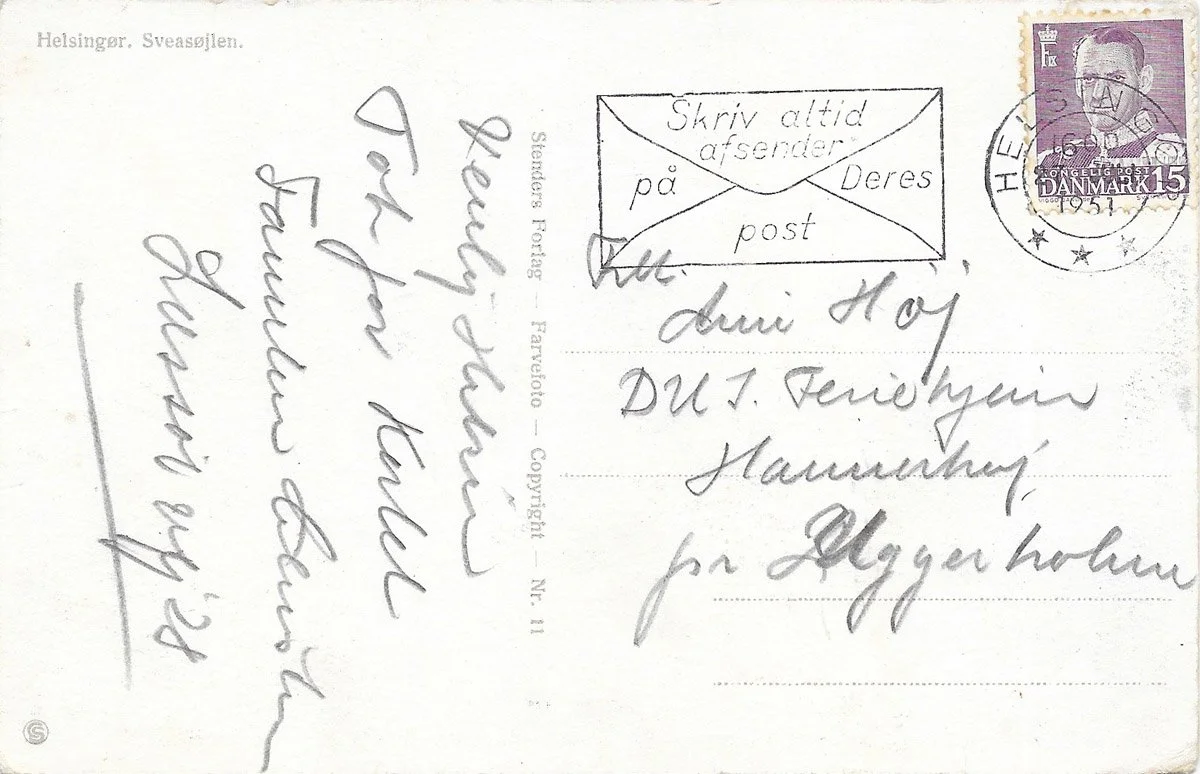 Helsingør. Sveasøjlen.
Venlig Hilsen
Tak for Kortet
Familien
vej 28
Stenders Forlag — Farvefoto — Copyright — Nr. 11
Skriv altid
afsender
på Deres
post
HELSINGØR
1951
KONGELIG POST
DANMARK 15
Frk.
Anni Høj
DUI. Feriehjem
Hannerhøj
pr Uggerholme